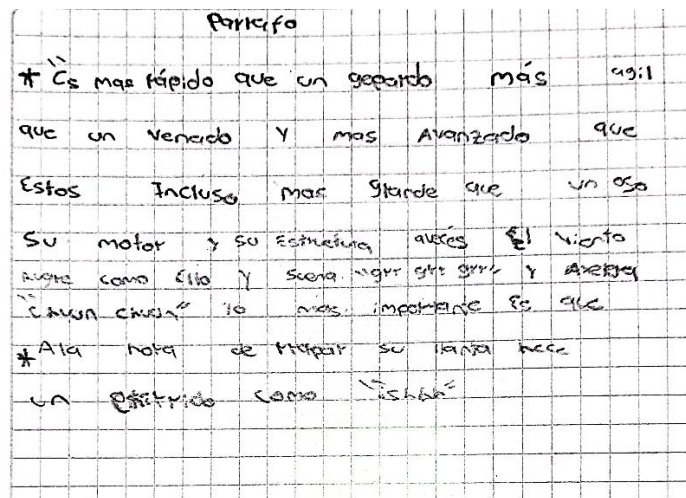 Parrafo
* "Es mas rápido que un gepardo más agil
que un venado y mas Avanzado que
Estos Incluso mas grande que un oso
Su motor y su Estructura aveces El viento
ruge como Ello y suena "grr grr grrr" y
"chuun chuun" lo mas importante Es que
* Ala hora de su llanta hece
un como "ishhh"